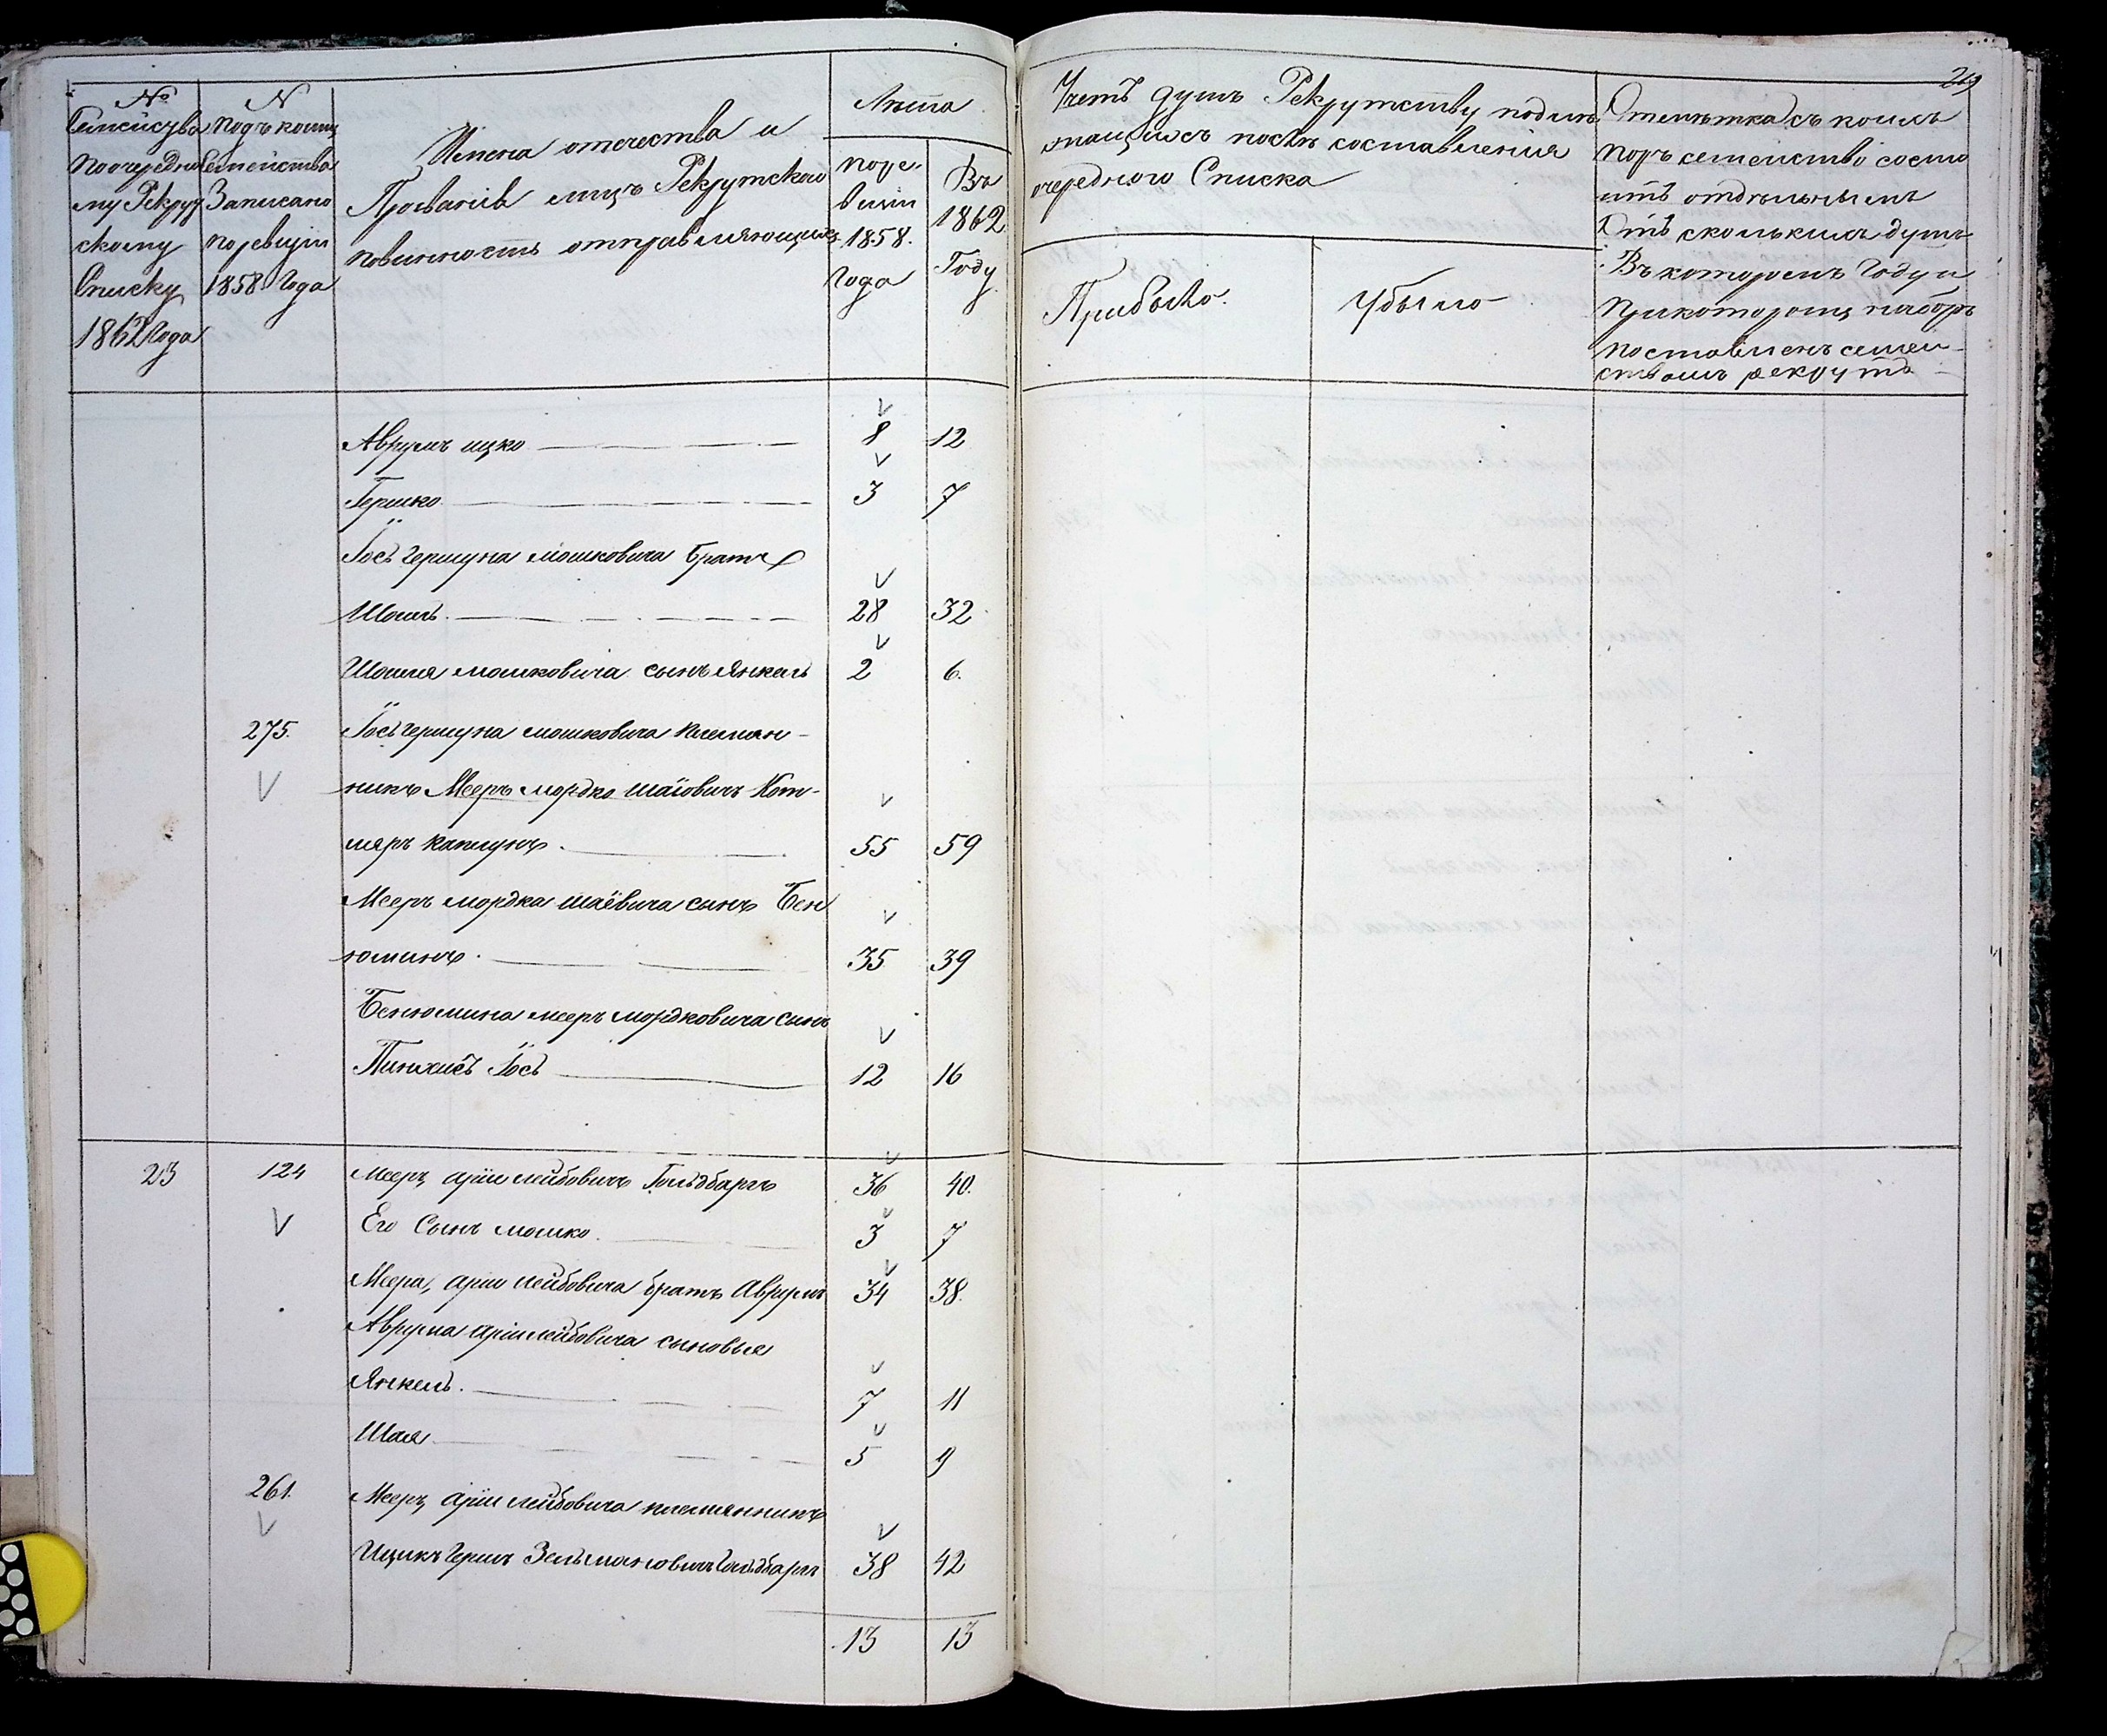 269
№
Семейства
поочередно
му Рекрут
скому
Списку
1862 Года
N
подъ коимъ
Семейства
Записано
поревизіи
1858 Года
Имена отечества и
Прозваніе лицъ Рекрутскою
повинность отправляющихъ
Лѣта
поре-
визіи
1858.
Года
Въ
1862
Году
Учетъ душъ Рекрутству подле
жащихъ послѣ составленія
очереднаго Списка
Прибыло.
Убыло
Отмѣтка съ коихъ
поръ семейство состо
итъ отдѣльнымъ
Отъ сколькихъ душъ
Въ которомъ Году и
при которомъ наборѣ
поставленъ семей-
ствомъ рекрутъ
Аврумъ ицко 8 12
Гершко 3 7
Іось гершуна мошковича братья
Шоилъ. 28 32
Шоиля мошковича сынъ Янкель 2 6.
275. Іосьгершуна мошковича племян-
никъ Мееръ мордко шаіовичъ Кот-
ляръ капшунъ. 55 59
Мееръ мордка шаёвича сынъ Бен
юминъ. 35 39
Бенюмина мееръ мордковича сынъ
Пинхасъ Іось 12 16
23 124 Мееръ аріи лейбовичъ Гольдбаргъ 36 40.
Его Сынъ мошко. 3 7
Меера, аріи лейбовича братъ Аврумъ 34 38.
Аврума аріи лейбовича сыновья
Янкель. 7 11
Шая 5 9
261. Мееръ аріи лейбовича племянникъ
Ицикъ герш Зельмановичъ Гольдбарг 38 42
13 13